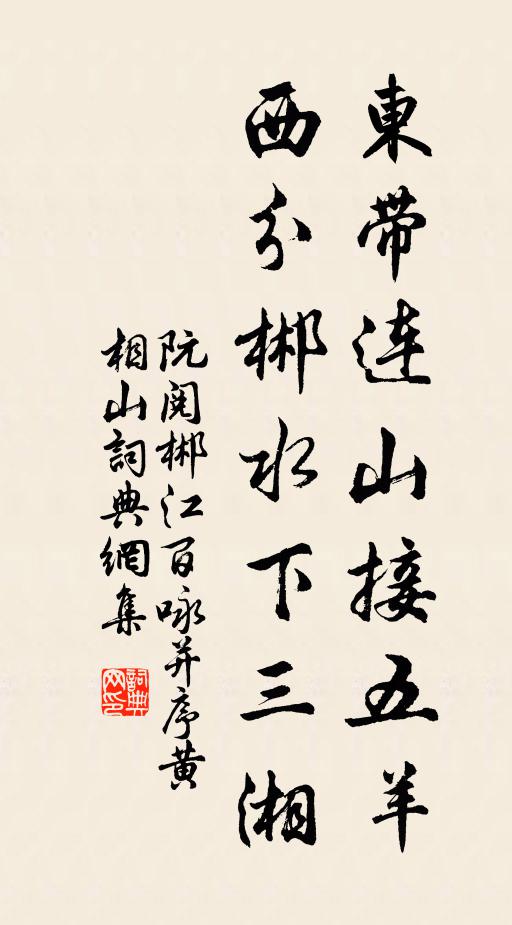 東帶連山接五羊
西分郴水下三湘
阮閱郴江百詠并序黃
相山詞典網集
詞典网印